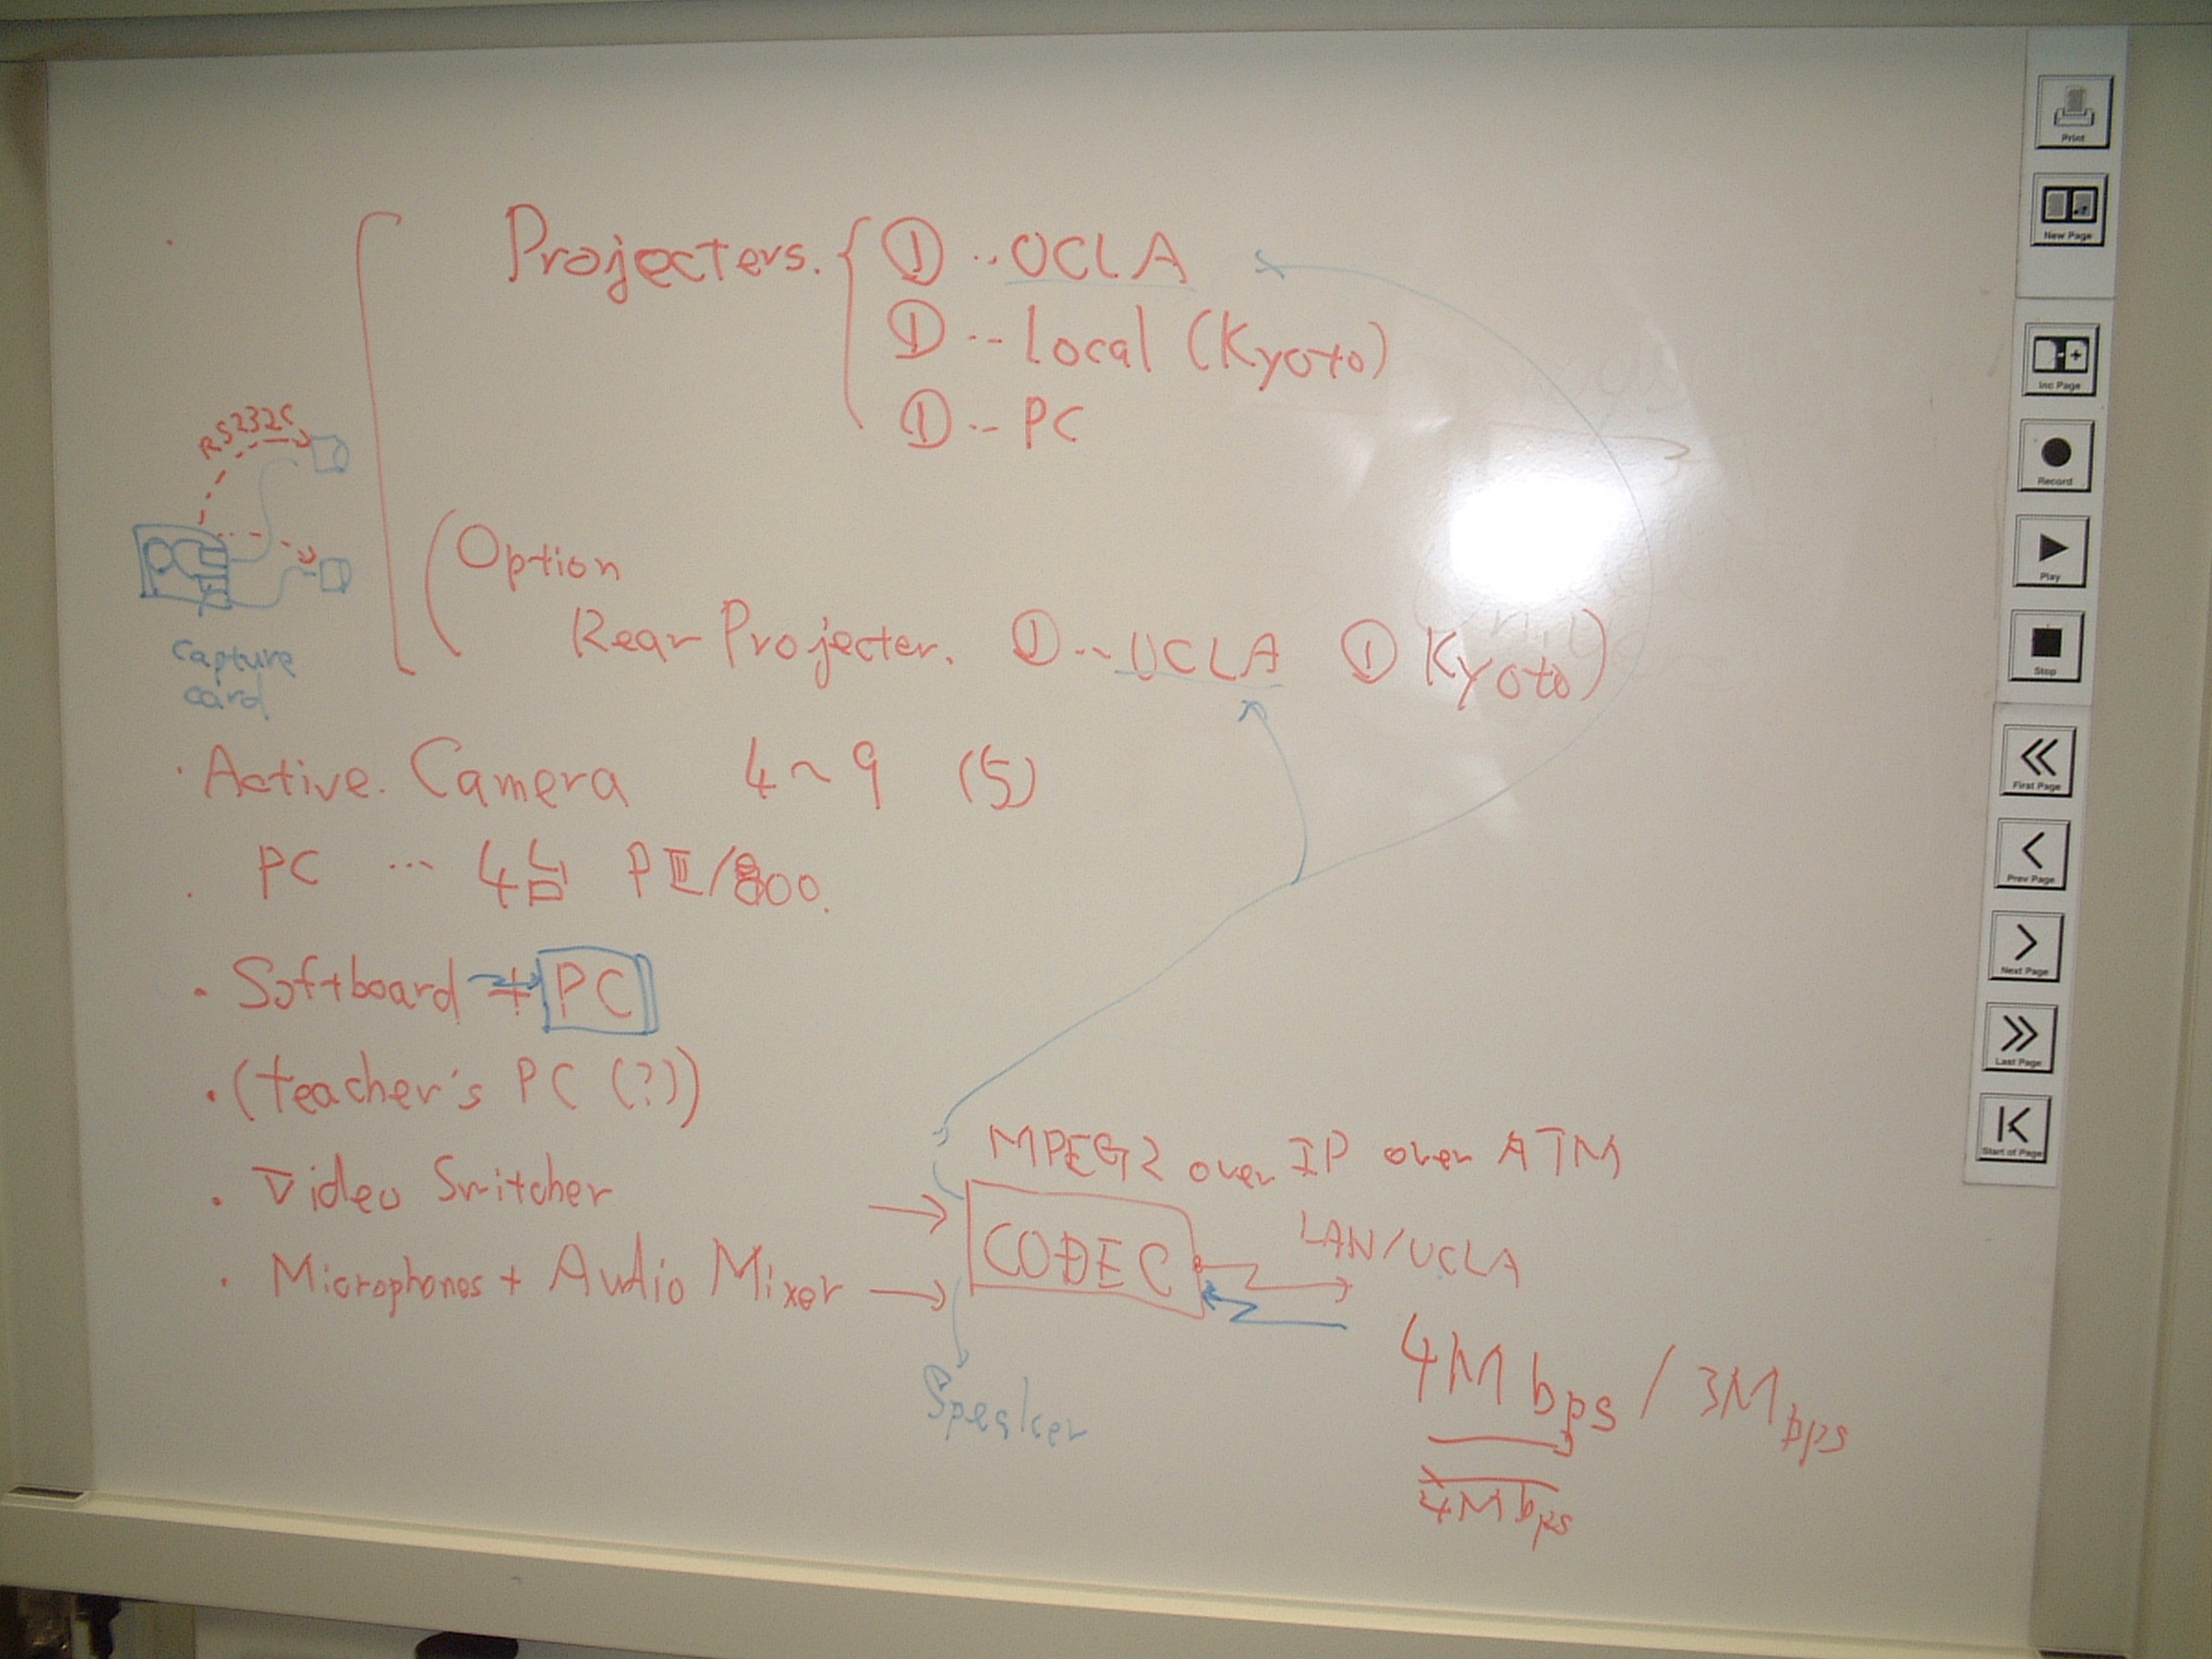 Projecters. { ① ‥ UCLA
① ‥ local (Kyoto)
① ‥ PC
RS232C
capture
card
(Option
Rear Projecter. ① ‥ UCLA ① Kyoto)
· Active. Camera 4~9 (5)
· PC … 4台 PⅢ/800.
· Softboard + PC
· (teacher's PC (?))
· Video Switcher
· Microphones + Audio Mixer
MPEG2 over IP over ATM
CODEC
LAN/UCLA
Speaker
4Mbps / 3Mbps
4Mbps
Print
New Page
Inc Page
Record
Play
Stop
First Page
Prev Page
Next Page
Last Page
Start of Page